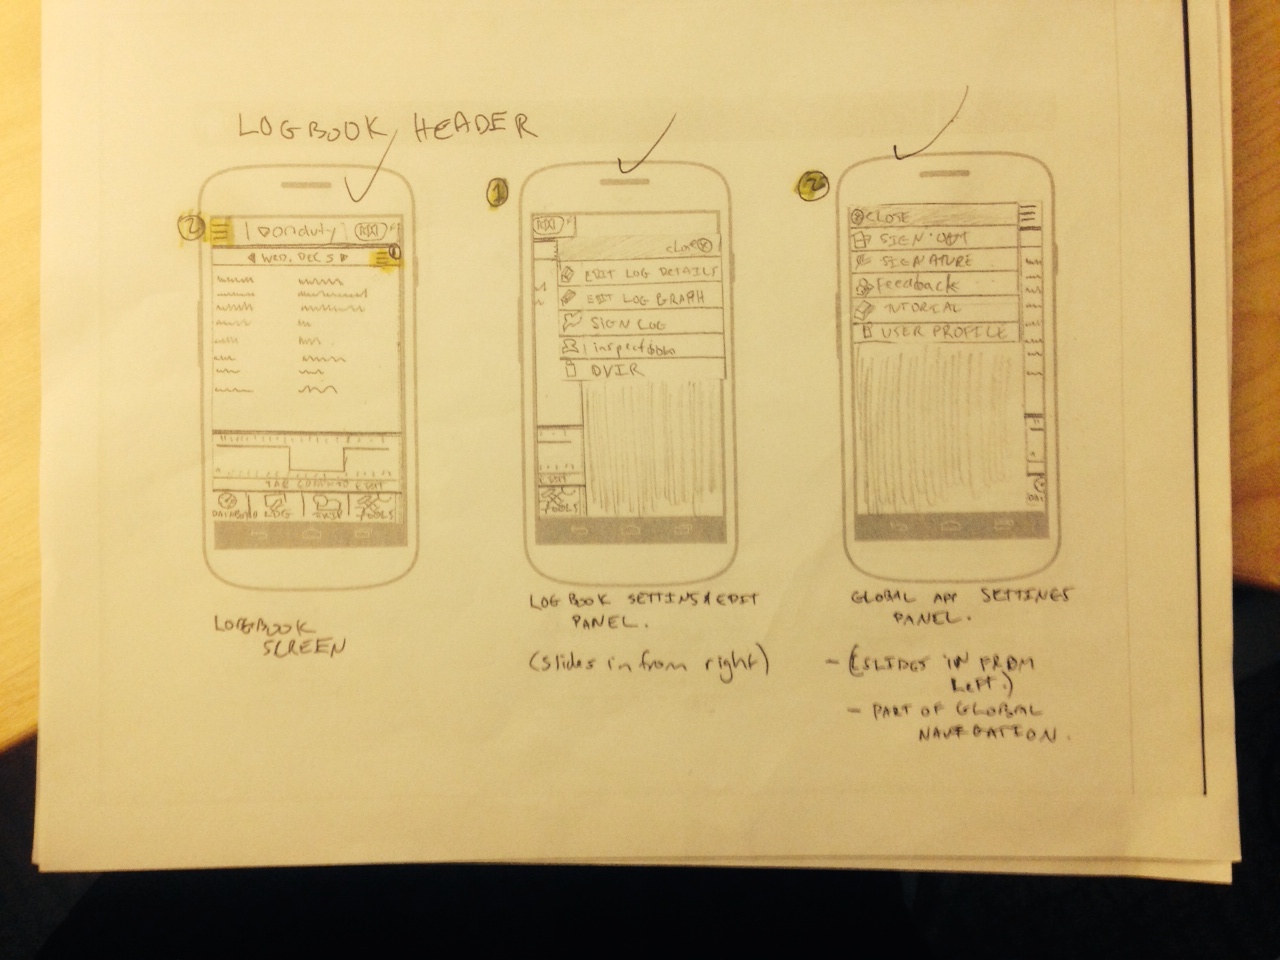 LOGBOOK HEADER
2
onduty
WED. DEC 5
1
TOOLS
LOGBOOK
SCREEN
1
CLOSE
EDIT LOG DETAILS
EDIT LOG GRAPH
SIGN LOG
inspections
DVIR
EDIT
TOOLS
LOGBOOK SETTINS & EDIT
PANEL.
(slides in from right)
2
CLOSE
SIGN OUT
SIGNATURE
Feedback
TUTORIAL
USER PROFILE
GLOBAL APP SETTINGS
PANEL.
- (SLIDES IN FROM
Left.)
- PART OF GLOBAL
NAVEGATION.